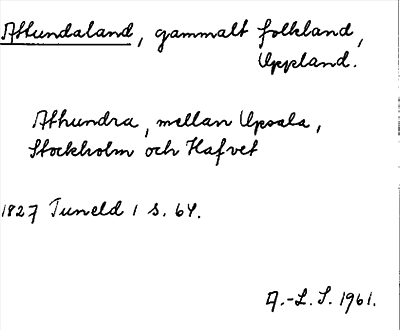 Attundaland, gammalt folkland,
Uppland.
Athundra, mellan Upsala,
Stockholm och Hafvet
1827 Tuneld 1 s. 64.
A.-L. S. 1961.